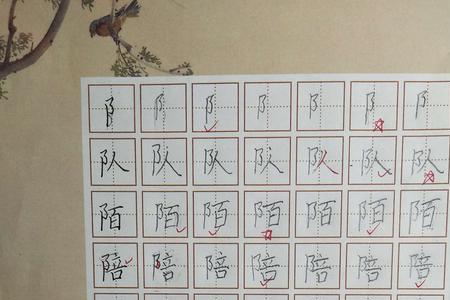 阝阝阝阝阝阝阝
队队队队队队队
陌陌陌陌陌陌陌
陪陪陪陪陪陪陪